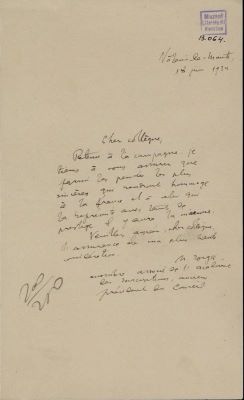 Muzeul
Literaturii
Române
13.064.
Vălenii-de-Munte,
18 juin 1934
Cher collègue,
Retenu à la campagne, je
tiens à vous assurer que
parmi les pensées les plus
sincères qui rendront hommage
à la France et à celui qui
la représente avec tant de
prestige il y aura la mienne.
Veuillez agréer, cher collègue,
l'assurance de ma plus haute
considération
N. Iorga
membre associé de l'Académie
des inscriptions, ancien
président du Conseil